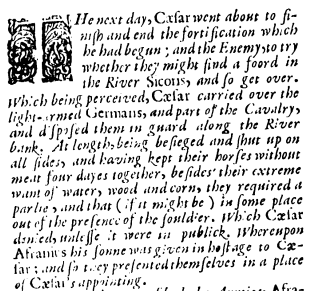 THe next day, Cæsar went about to fi-
nish and end the fortification which
he had begun; and the Enemy, to try
whether they might find a foord in
the River Sicoris, and so get over.
Which being perceived, Cæsar carried over the
light-armed Germans, and part of the Cavalry,
and disposed them in guard along the River
bank. At length, being besieged and shut up on
all sides, and having kept their horses without
meat four dayes together, besides their extreme
want of water, wood and corn, they required a
parlie, and that (if it might be) in some place
out of the presence of the souldier. Which Cæsar
denied, unlesse it were in publick. Whereupon
Afranius his sonne was given in hostage to Cæ-
sar; and so they presented themselves in a place
of Cæsar's appointing.